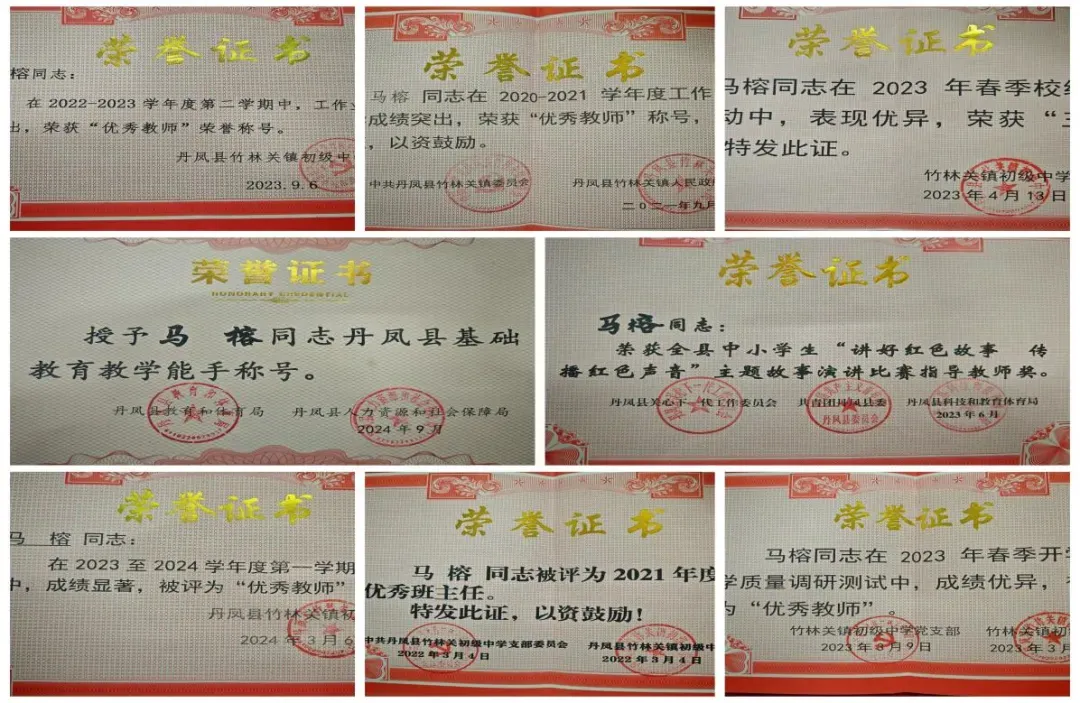 荣誉证书
榕同志：
在 2022-2023 学年度第二学期中，工作
出，荣获“优秀教师”荣誉称号。
丹凤县竹林关镇初级中
2023.9.6
荣誉证书
马榕 同志在 2020-2021 学年度工作
成绩突出，荣获“优秀教师”称号，
，以资鼓励。
中共丹凤县竹林关镇委员会 丹凤县竹林关镇人民政府
二〇二一年九月
荣誉证书
马榕同志在 2023 年春季校
动中，表现优异，荣获“主
特发此证。
竹林关镇初级中学
2023 年 4 月 13 日
荣誉证书
HONORARY CREDENTIAL
授予马 榕同志丹凤县基础
教育教学能手称号。
丹凤县教育和体育局 丹凤县人力资源和社会保障局
2024 年 9 月
荣誉证书
马榕同志：
荣获全县中小学生“讲好红色故事 传
播红色声音”主题故事演讲比赛指导教师奖。
丹凤县关心下一代工作委员会 共青团丹凤县委 丹凤县科技和教育体育局
2023 年 6 月
荣誉证书
马 榕 同志：
在 2023 至 2024 学年度第一学期
中，成绩显著，被评为“优秀教师”
丹凤县竹林关镇初
2024 年 3 月 6
荣誉证书
马 榕 同志被评为 2021 年度
优秀班主任。
特发此证，以资鼓励！
中共丹凤县竹林关镇初级中学支部委员会 丹凤县竹林关镇初级中
2022 年 3 月 4 日 2022 年 3 月 4 日
荣誉证书
马榕同志在 2023 年春季开学
学质量调研测试中，成绩优异，
为“优秀教师”。
竹林关镇初级中学党支部 竹林关镇初级
2023 年 3 月 9 日 2023 年 3 月